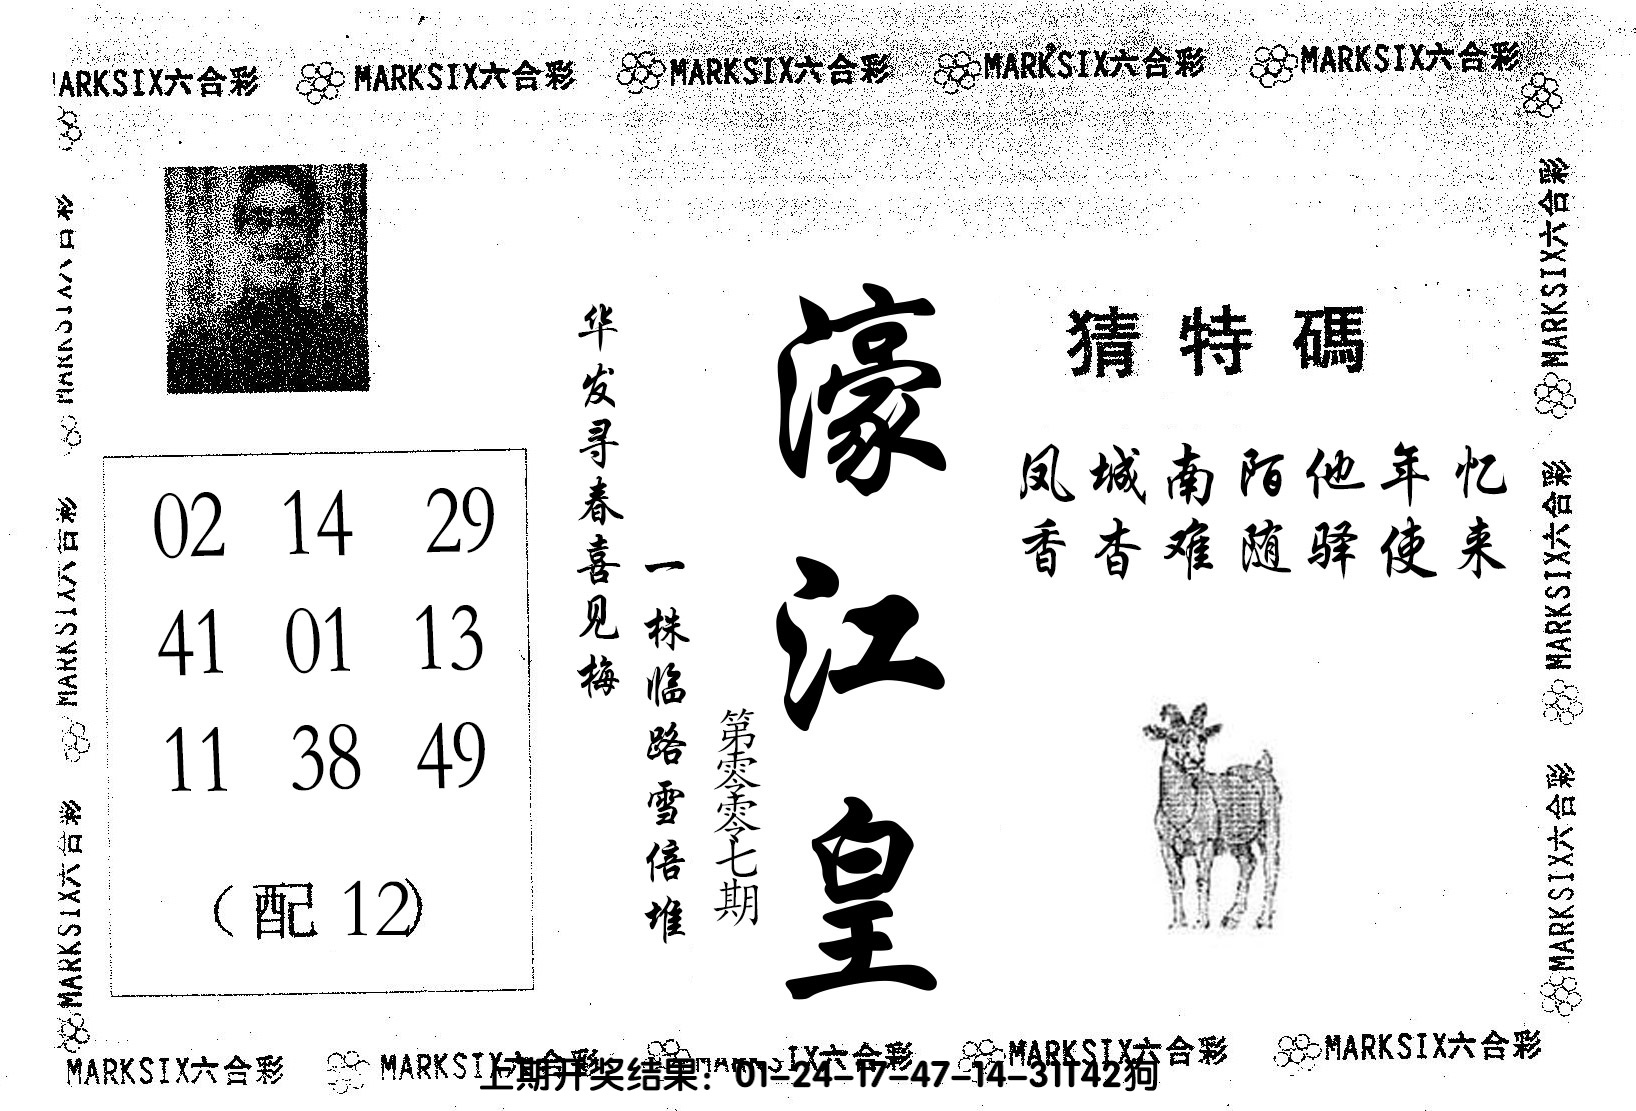 MARKSIX六合彩 MARKSIX六合彩 MARKSIX六合彩 MARKSIX六合彩
ARKSIX六合彩
猜特碼
凤城南陌他年忆
香杳难随驿使来
濠江皇
第零零七期
华发寻春喜见梅
一株临路雪倍堆
02 14 29
41 01 13
11 38 49
(配 12)
MARKSIX六合彩
MARKSIX六合彩
MARKSIX六合彩
MARKSIX六合彩
MARKSIX六合彩
MARKSIX六合彩
MARKSIX六合彩 MARKSIX六合彩 MARKSIX六合彩 MARKSIX六合彩
上期开奖结果：01-24-17-47-14-31T42狗